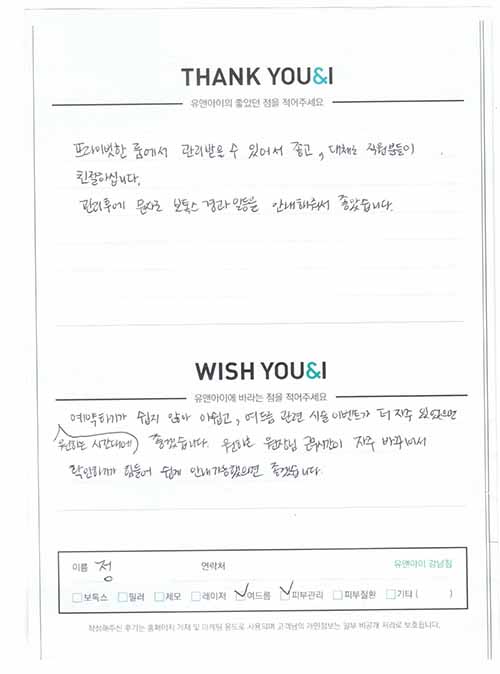 THANK YOU&I
유앤아이의 좋았던 점을 적어주세요
프라이빗한 룸에서 관리받을 수 있어서 좋고, 대체로 직원분들이
친절하십니다.
관리후에 문자로 보톡스 경과 일등을 안내해줘서 좋았습니다.
WISH YOU&I
유앤아이에 바라는 점을 적어주세요
예약하기가 쉽지 않아 아쉽고, 여드름 관련 시술 이벤트가 더 자주 있었으면
(원하는 시간대에) 좋겠습니다. 원하는 원장님 근무시간이 자주 바뀌어서
확인하기가 힘들어 쉽게 안내가능했으면 좋겠습니다.
이름 정 연락처 유앤아이 강남점
보톡스 필러 제모 레이저 여드름 피부관리 피부질환 기타 ( )
작성해주신 후기는 홈페이지 기재 및 마케팅 용도로 사용되며 고객님의 개인정보는 일부 비공개 처리로 보호됩니다.